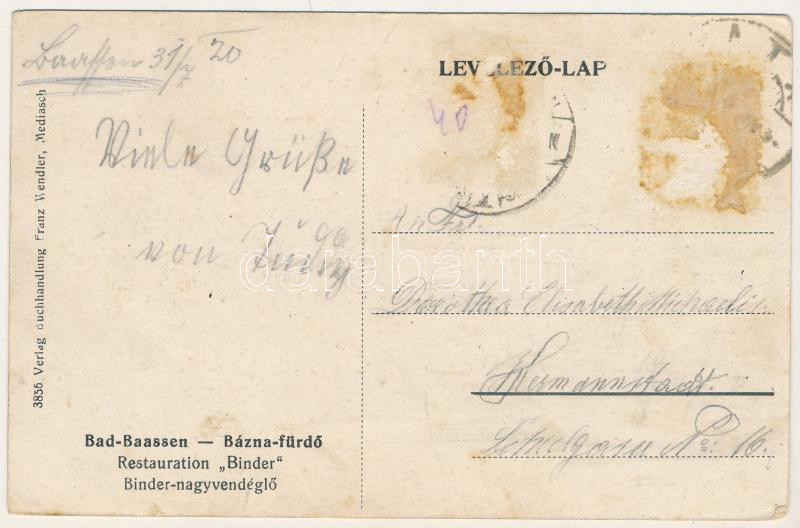 Baassen 31/7 20
LEV LEZŐ-LAP
40
Viele Grüße
von
An Frl.
Dorothea Elisabeth Michaelis.
Hermannstadt.
Schulgasse No: 16.
3856 Verlag Buchhandlung Franz Wendler, Mediasch
Bad-Baassen — Bázna-fürdő
Restauration „Binder"
Binder-nagyvendéglő
darabanth